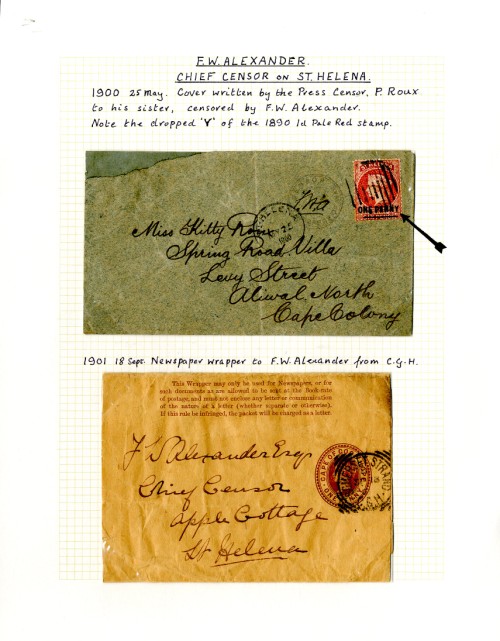 F.W. ALEXANDER.
CHIEF CENSOR ON ST. HELENA.
1900 25 May. Cover written by the Press Censor, P. Roux
to his sister, censored by F.W. Alexander.
Note the dropped 'Y' of the 1890 1d Pale Red stamp.
ONE PENNY
Miss Kitty Roux
Spring Road Villa
Levy Street
Aliwal North
Cape Colony
1901 18 Sept. Newspaper wrapper to F.W. Alexander from C.G.H.
This Wrapper may only be used for Newspapers, or for
such documents as are allowed to be sent at the Book-rate
of postage, and must not enclose any letter or communication
of the nature of a letter (whether separate or otherwise).
If this rule be infringed, the packet will be charged as a letter.
Alexander Esq
Chief Censor
Apple Cottage
St Helena